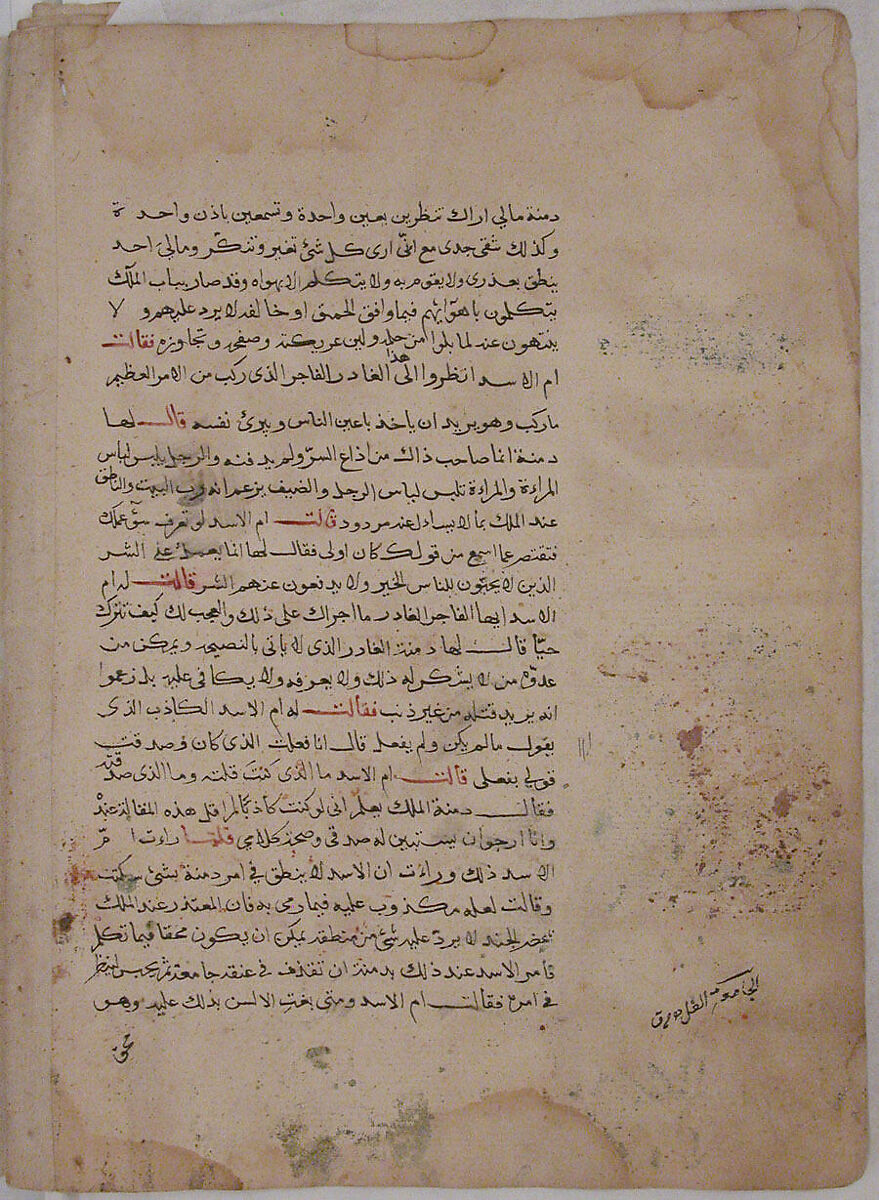 دمنة مالي اراك تنظرين بعين واحدة وتسمعين باذن واحدة
وكذلك شقى جدى مع انّى ارى كل شئ تغير وتنكّر ومالى احد
ينطق بعذرى ولا يقوم به ولا يتكلم الا بهواه وقد صار بباب الملك
يتكلمون باهوآيهم فيما وافق الحمق او خالفه لا يرد عليهم ولا
ينتهون عند لما بلوا من حلمه ولين عريكته وصفحه وتجاوزه فقالت
ام الاسد انظروا الى هذا الغادر الفاجر الذى ركب من الامر العظيم
ما ركب وهو يريد ان ياخذ باعين الناس ويبرئ نفسه قال لها
دمنة انما صاحب ذاك من اذاع السرّ ولم يدفنه والرجل يلبس لباس
المراءة والمراءة تلبس لباس الرجل والضيف يزعم انه رب البيت والناطق
عند الملك بما لا يسال عنه مردود قالت ام الاسد لو تعرف سوٓ عملك
فتقتصر عما اسمع من قولك كان اولى فقال لها انما يعمل على الشر
الذين لا يحبون للناس الخير ولا يدفعون عنهم الشر قالت له ام
الاسد ايها الفاجر الغادر ما اجراك على ذلك والعجب لك كيف تترك
حيّا قال لها دمنة الغادر الذى لا ياتى بالنصيحه ويمكن من
عدوّه من لا يشكر له ذلك ولا يعرفه ولا يكافى عليه بل زعموا
انه يريد قتله من غير ذنب فقالت له ام الاسد الكاذب الذى
يقول ما لم يكن ولم يفعل قال انا فعلت الذى كان وصدقت
قولى بفعلى قالت ام الاسد ما الذى كنت قلته وما الذى صدقته
فقال دمنة الملك يعلم انى لو كنت كاذبا لم اقل هذه المقالة عنده
وانا ارجو ان يستبين له صدقى وصحة كلامى فلما راءت امّ
الاسد ذلك وراءت ان الاسد لا ينطق فى امر دمنة بشئ سكتت
وقالت لعله مكذوب عليه فيما رمى به فان المعتذر عند الملك
بمحضر الجند لا يردّ عليه شئ من منطقه يمكن ان يكون محقا فيما تكلم
فامر الاسد عند ذلك بدمنة ان تقذف فى عنقه جامعة ثم يحبس لينظر
فى امره فقالت ام الاسد ومتى بغت الالسن بذلك عليه وهو
الجامعة الغل